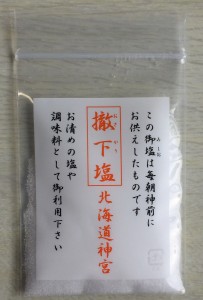 この御塩は毎朝神前に
お供えしたものです
撤下塩
北海道神宮
お清めの塩や
調味料として御利用下さい